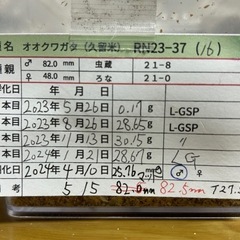 名 オオクワガタ（久留米） RN23-37 (16)
親 ♂ 82.0 mm 虫蔵 21-8
♀ 48.0 mm ろな 21-0
化日 年 月 日
本目 2023 5月26日 0.17g L-GSP
本目 2023 8月26日 28.65g L-GSP
本目 2023 11月13日 30.15g 〃
本目 2024 1月21日 28.67g LG
化日 2024年4月10日 25.76g ♂・♀
考 5 15 82.0mm 82.5mm